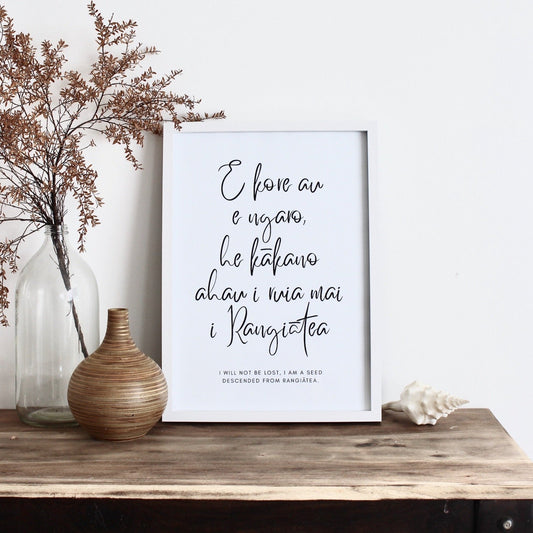 E kore au
e ngaro,
he kākano
ahau i ruia mai
i Rangiātea
I WILL NOT BE LOST, I AM A SEED
DESCENDED FROM RANGIĀTEA.